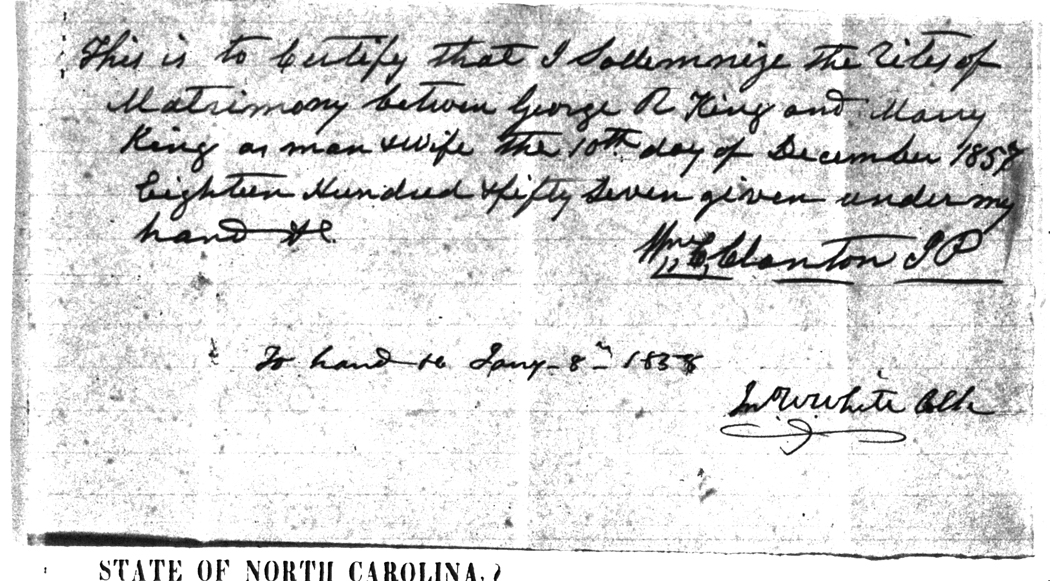 This is to Certify that I Sollemnize the rites of
Matrimony between George R King and Mary
King as man & wife the 10th day of December 1857
Eighteen Hundred & fifty Seven given under my
hand &c.
Wm C. Clanton JP
To hand &c Jany 8th 1858
Jno W. White Clk
STATE OF NORTH CAROLINA,